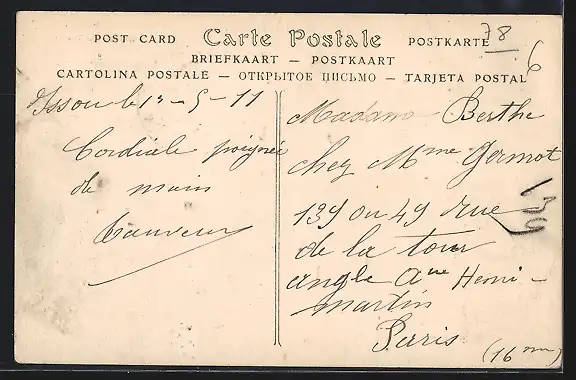 78
6
POST CARD Carte Postale POSTKARTE
BRIEFKAART — POSTKAART
CARTOLINA POSTALE — ОТКРЫТОЕ ПИСЬМО — TARJETA POSTAL
Issou le 1r - 5 - 11
Cordiale poignée
de main
Madame Berthe
chez Mme Germot
139 ou 49 rue
de la tour
angle Aue Henri -
martin
Paris
(16 me)